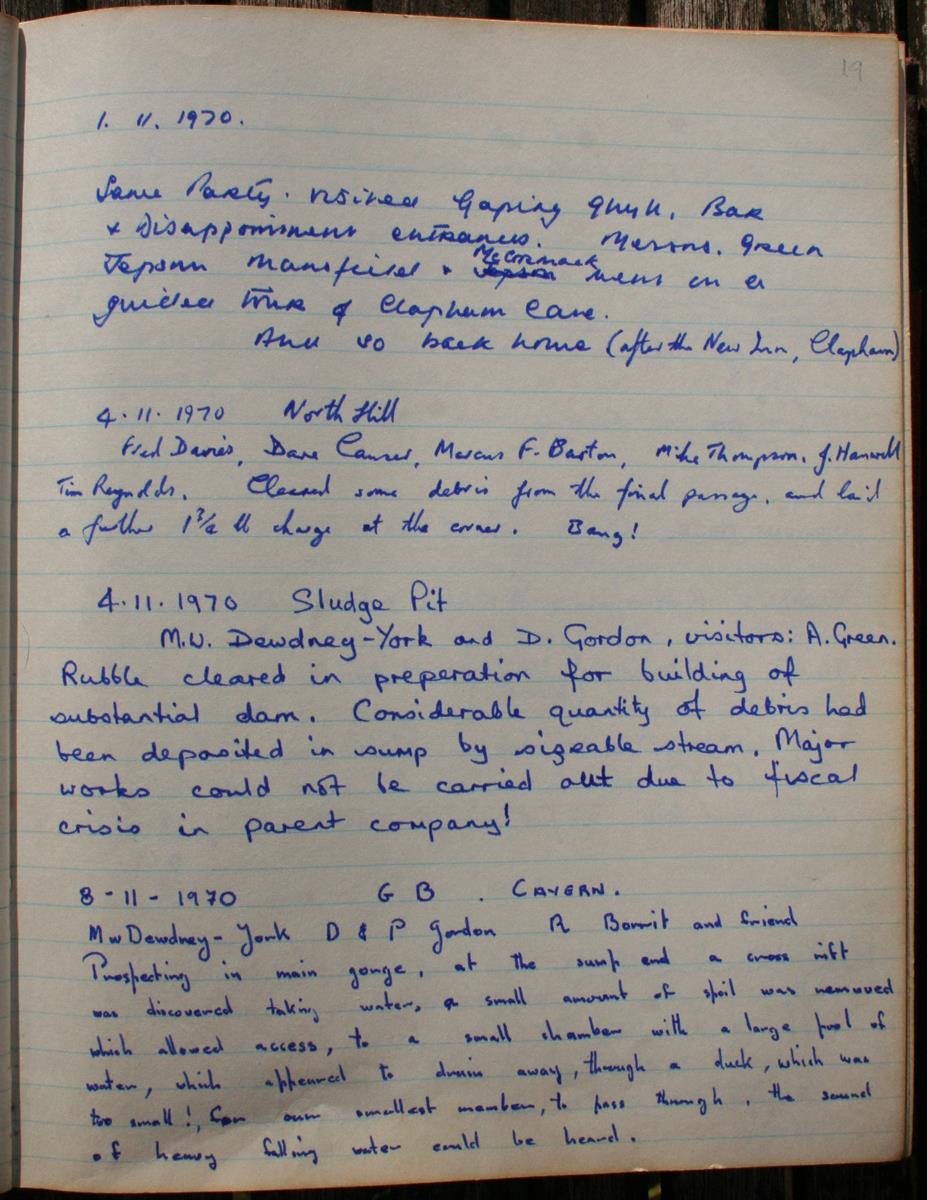 19
1. 11. 1970.
Same Party. visited Gaping Ghyll, Bar
& Disappointment entrances. Messrs. Green
Jepson Mansfield & McCormack went on a
guided tour of Clapham Cave.
And so back home (after the New Inn, Clapham)
4.11.1970 North Hill
Fred Davies, Dave Causer, Marcus F. Barton, Mike Thompson, J. Hanwell
Tim Reynolds. Cleared some debris from the final passage, and laid
a further 1 3/4 lb charge at the corner. Bang!
4.11.1970 Sludge Pit
M.W. Dewdney-York and D. Gordon, visitors: A. Green.
Rubble cleared in preperation for building of
substantial dam. Considerable quantity of debris had
been deposited in sump by sizeable stream. Major
works could not be carried out due to fiscal
crisis in parent company!
8-11-1970 G B . CAVERN.
M W Dewdney-York D & P Gordon R and friend
Prospecting in main gorge, at the sump end a cross rift
was discovered taking water, a small amount of spoil was removed
which allowed access, to a small chamber with a large pool of
water, which appeared to drain away, through a duck, which was
too small!, for our smallest member, to pass through, the sound
of heavy falling water could be heard.